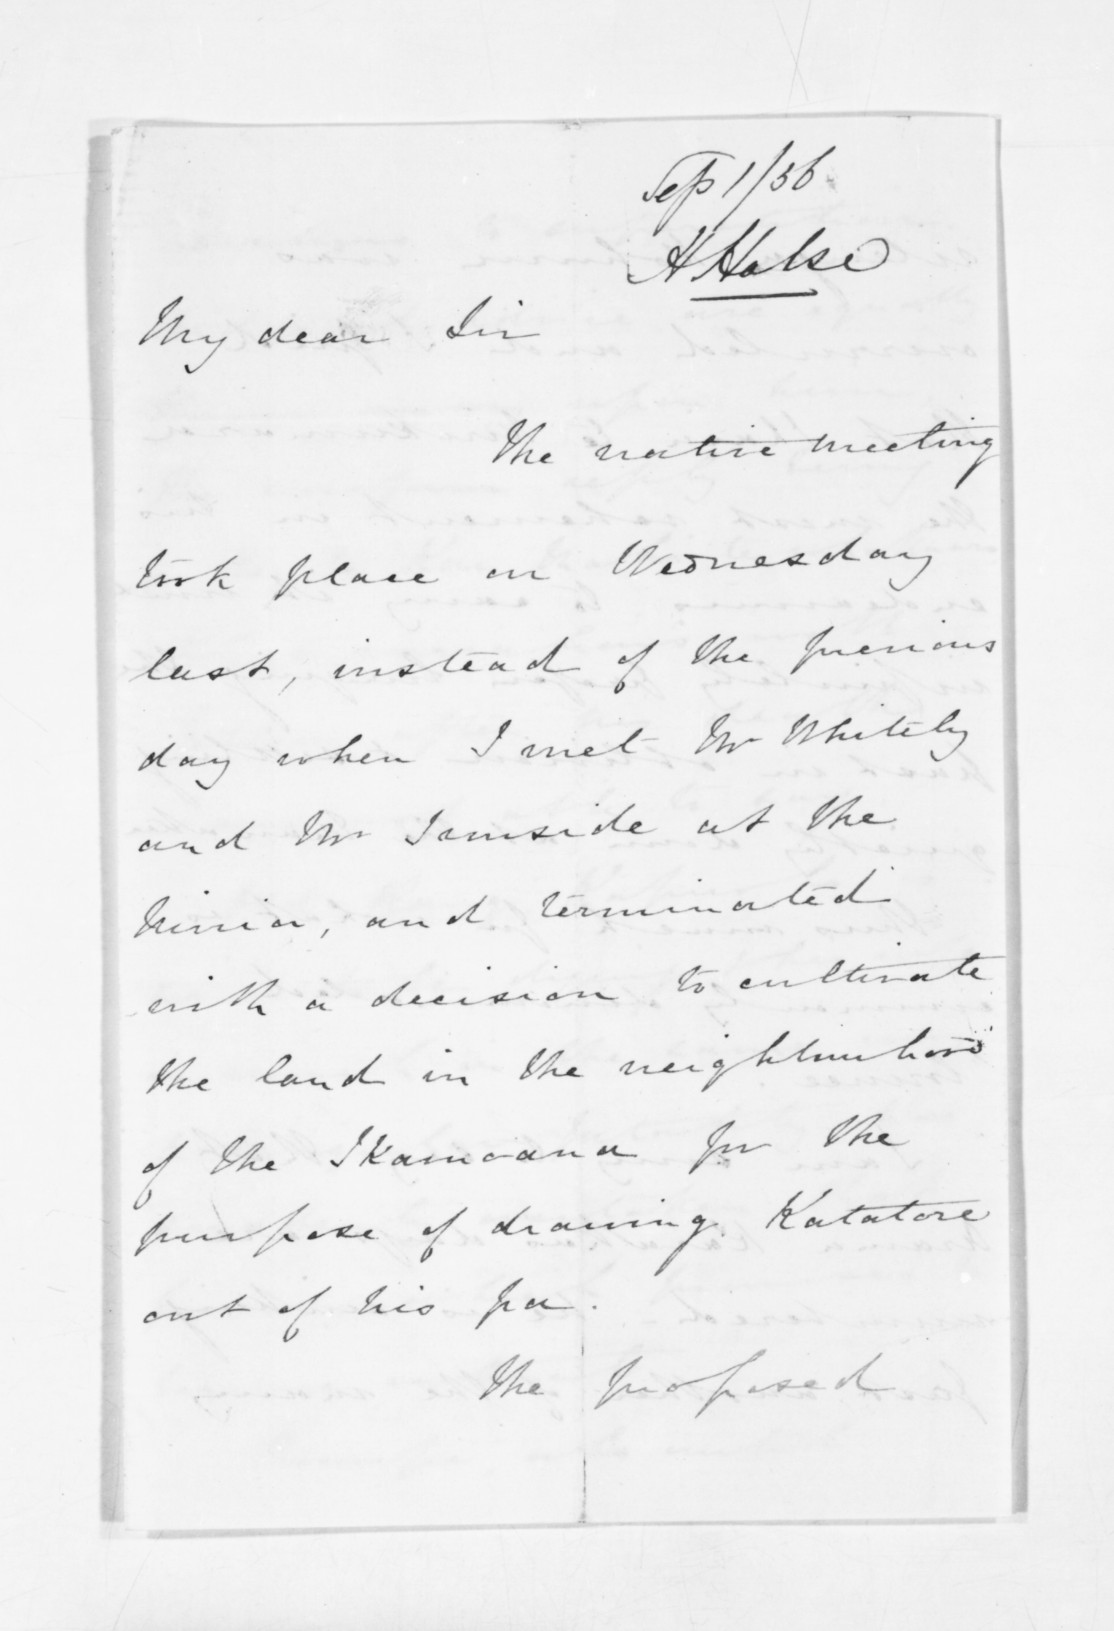 Sep 1/56
H Halse
My dear Sir
The native meeting
took place on Wednesday
last, instead of the previous
day when I met Mr Whitely
and Mr Ironside at the
and terminated
with a decision to cultivate
the land in the neighbourhood
of the Ikamoana for the
purpose of drawing Katatore
out of his pa.
The proposed